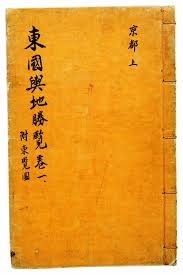 京都上
東國輿地勝覽卷一
附東覽圖